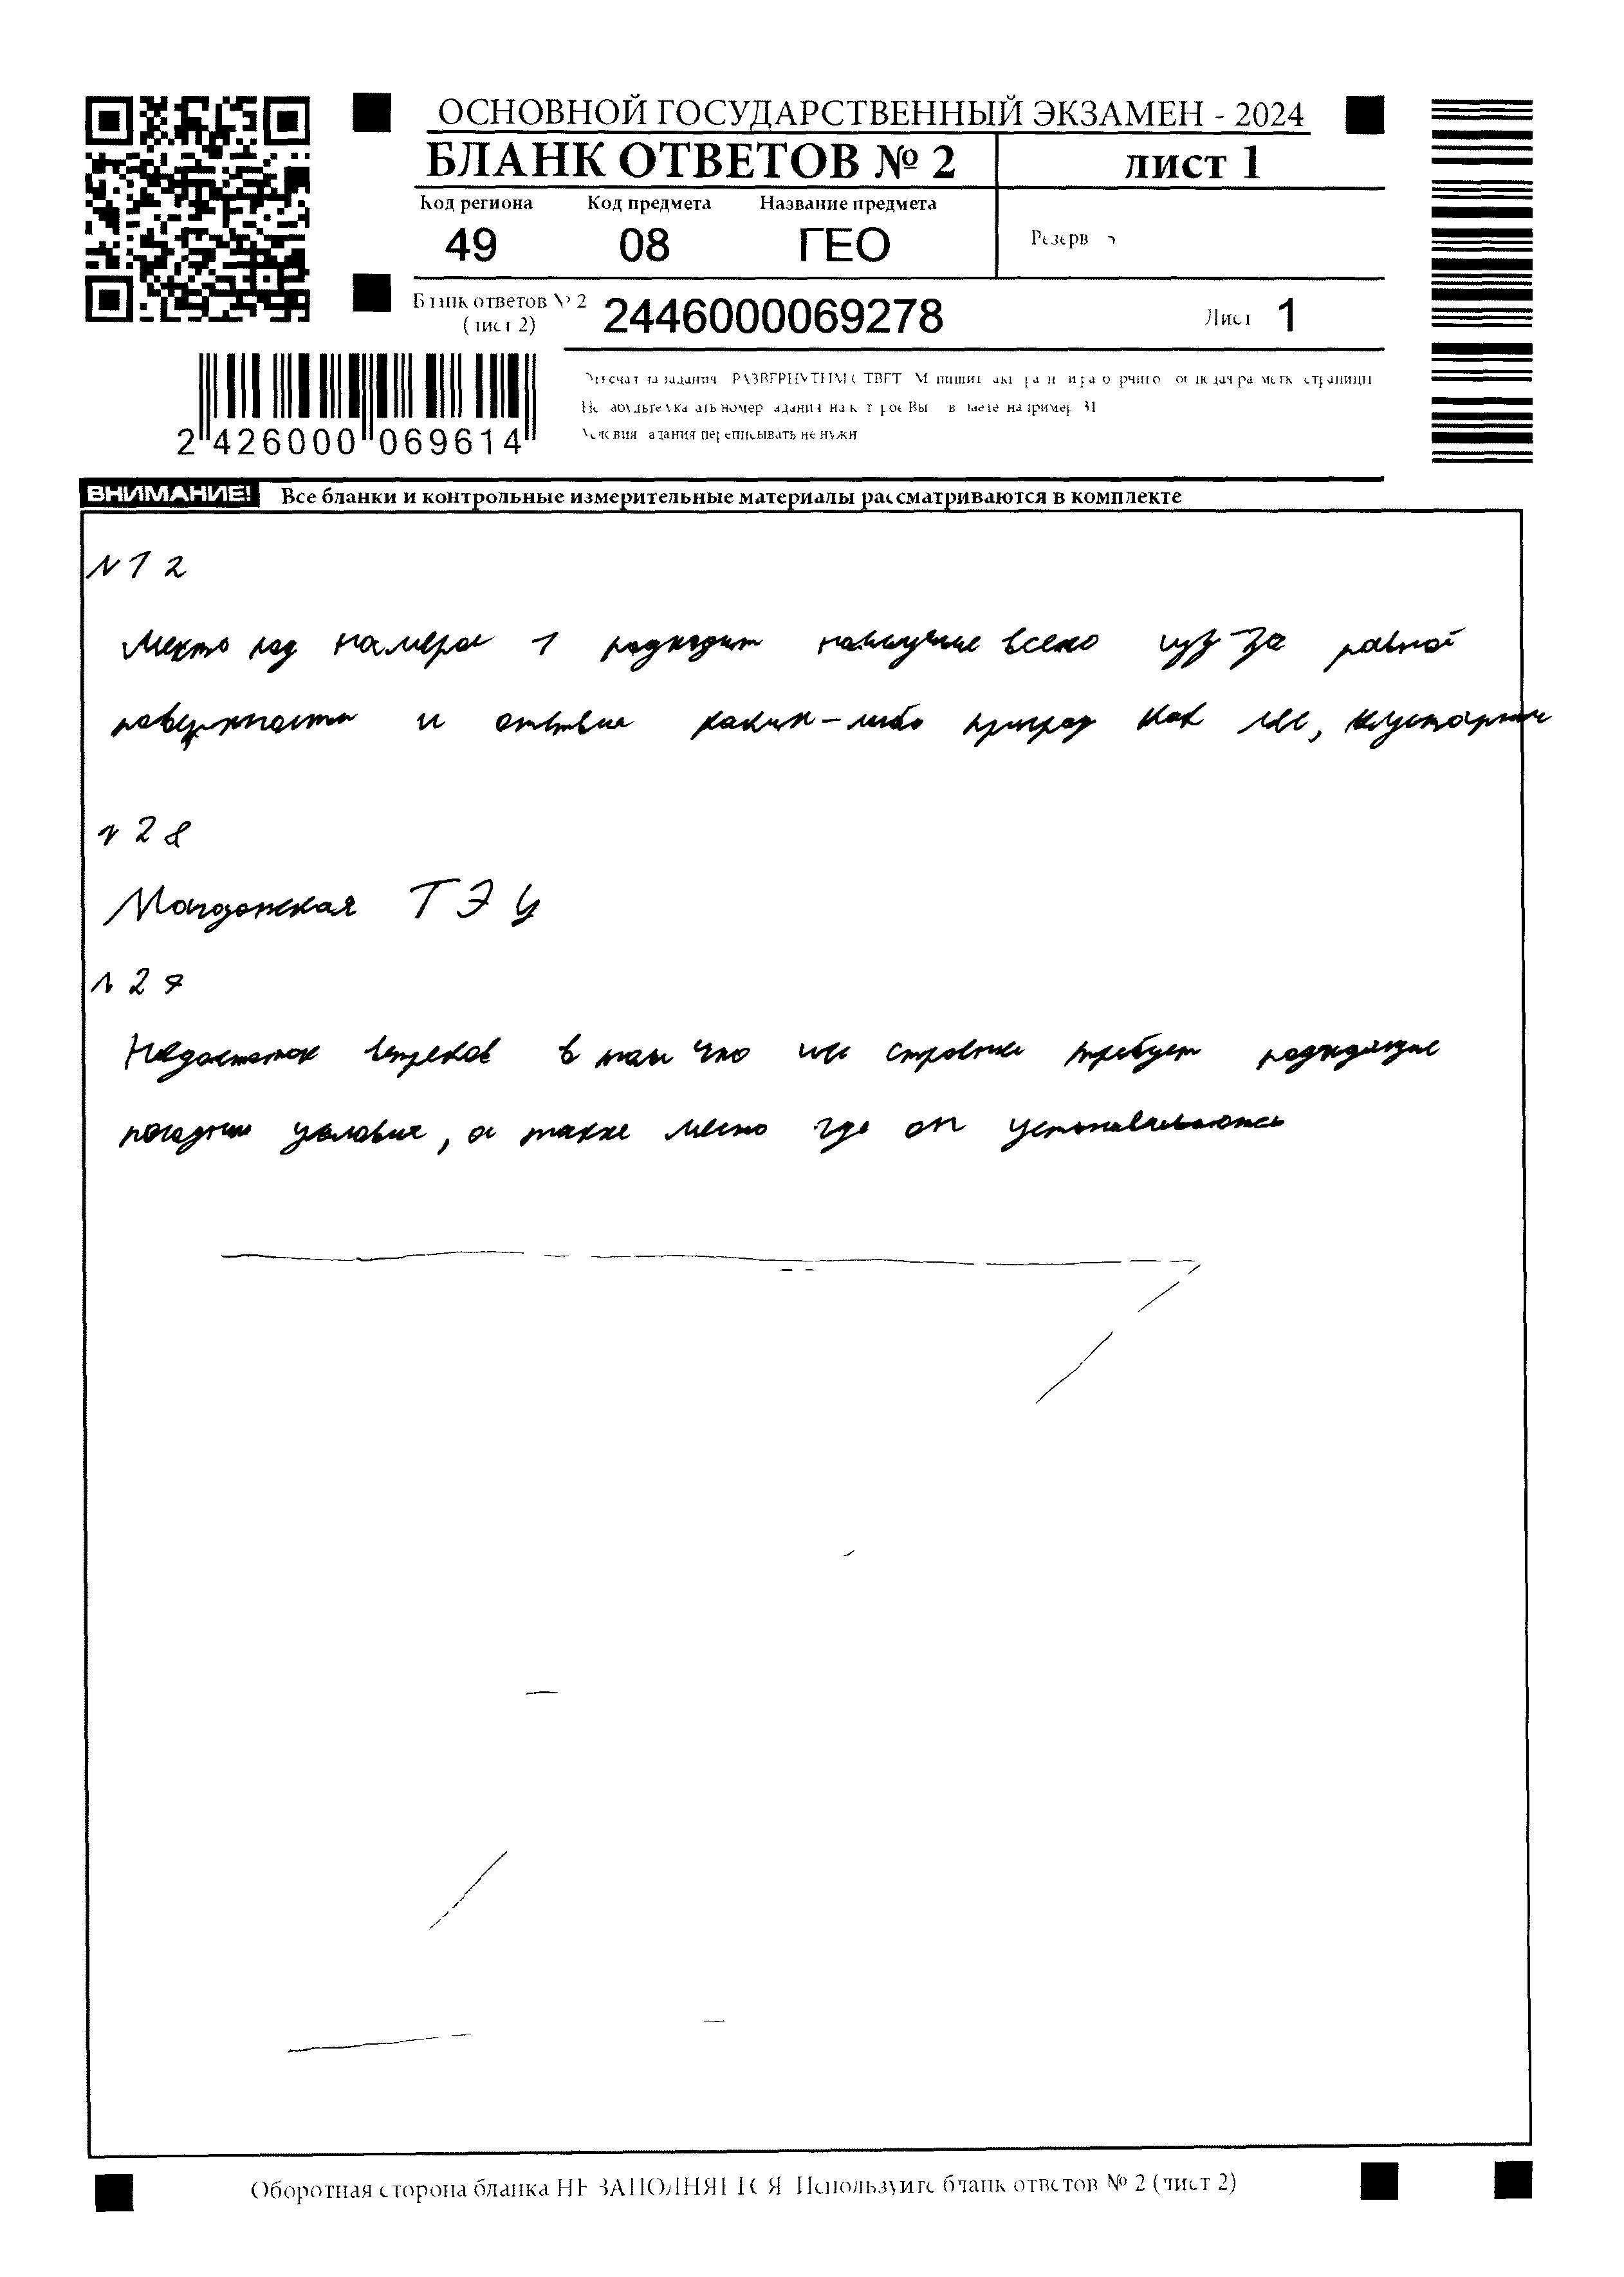 ОСНОВНОЙ ГОСУДАРСТВЕННЫЙ ЭКЗАМЕН - 2024
БЛАНК ОТВЕТОВ № 2 лист 1
Код региона Код предмета Название предмета
49 08 ГЕО Резерв
Бланк ответов № 2 (лист 2) 2446000069278 Лист 1
2 426000 069614
ВНИМАНИЕ! Все бланки и контрольные измерительные материалы рассматриваются в комплекте
N 12
Место под номера 1 подходит наилучше всего из за равной
поверхности и каких-либо преград как лес, кустарник
N 28
Магаданская ТЭЦ
N 29
Недостаток в том что их требует подходящие
погодные условия, а также место где он устанавливаются
Оборотная сторона бланка НЕ ЗАПОЛНЯЕТСЯ Используйте бланк ответов № 2 (лист 2)